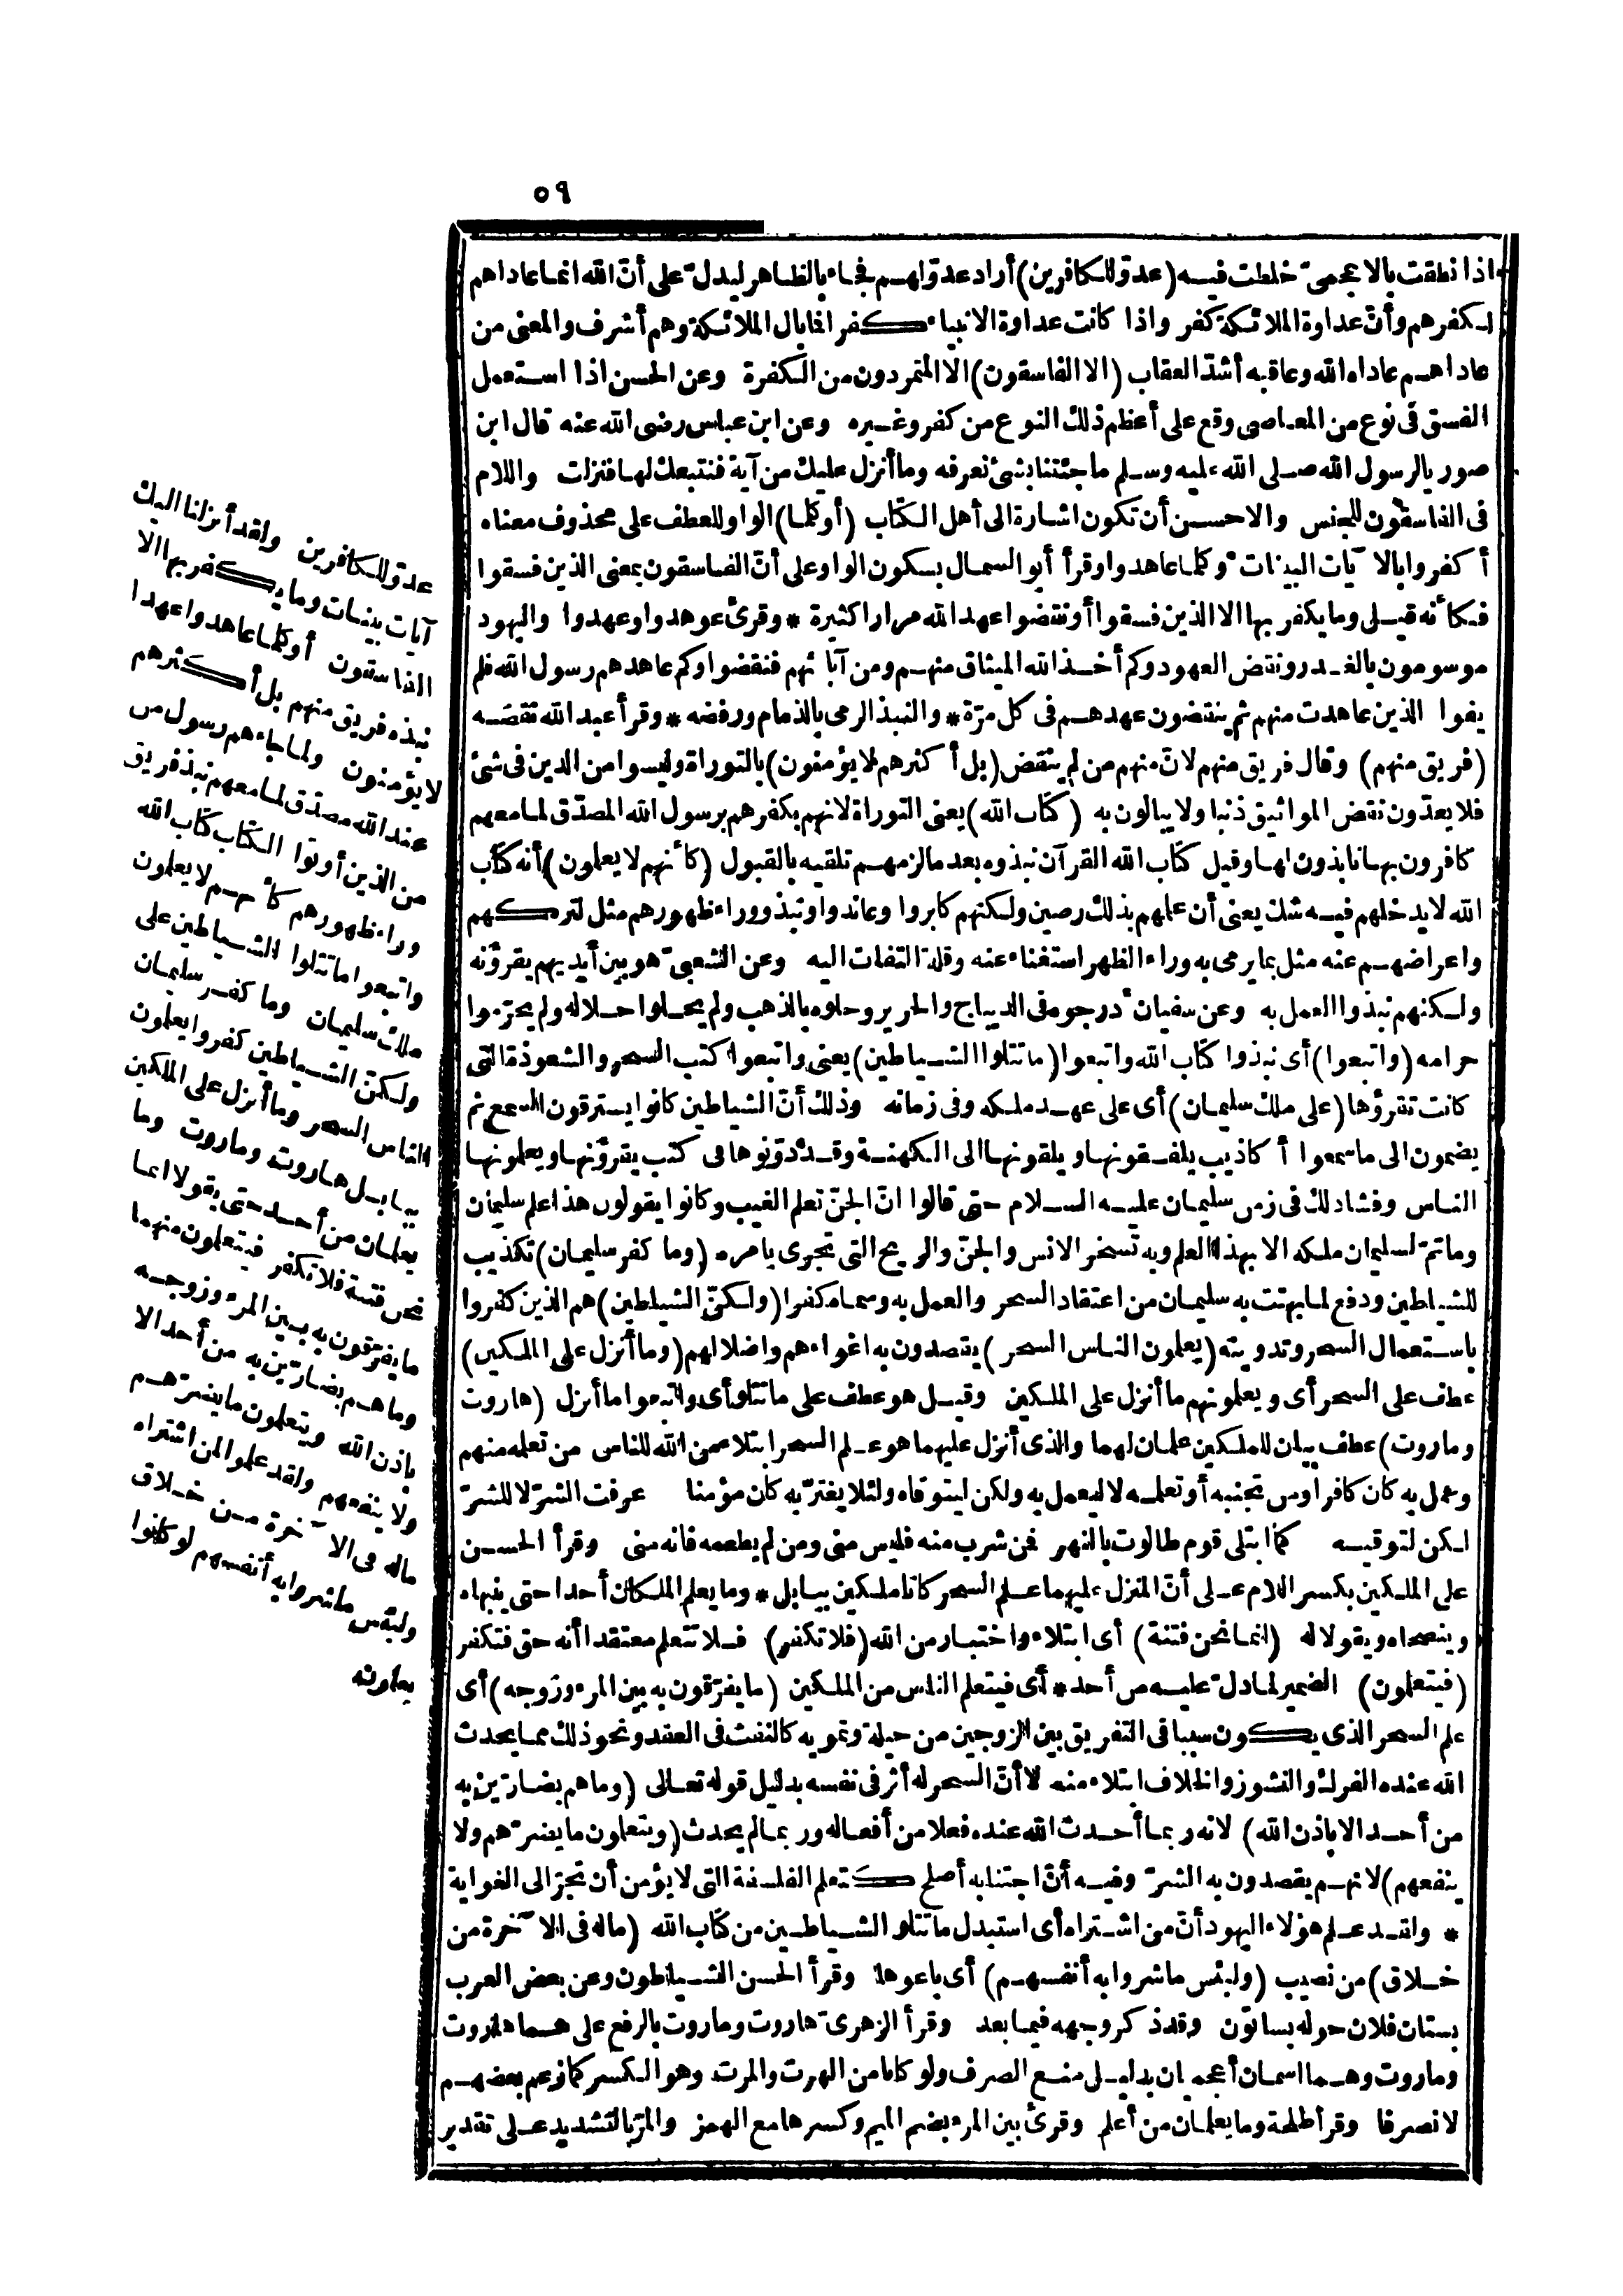 ٥٩
اذا نطقت بالاعجمىّ خلطت فيه (عدوّ للكافرين) أراد عدوّ لهم فجاء بالظاهر ليدلّ على أنّ الله انما عاداهم
لكفرهم وأنّ عداوة الملائكة كفر واذا كانت عداوة الانبياء كفرا فما بال الملائكة وهم أشرف والمعنى من
عاداهم عاداه الله وعاقبه أشدّ العقاب (الا الفاسقون) الا المتمردون من الكفرة وعن الحسن اذا استعمل
الفسق فى نوع من المعاصى وقع على أعظم ذلك النوع من كفر وغيره وعن ابن عباس رضى الله عنه قال ابن
صوريا لرسول الله صلى الله عليه وسلم ما جئتنا بشئ نعرفه وما أنزل عليك من آية فنتبعك لها فنزلت واللام
فى الفاسقون للجنس والاحسن أن تكون اشارة الى أهل الكتاب (أوكلما) الواو للعطف على محذوف معناه
أكفروا بالآيات البينات وكلما عاهدوا وقرأ أبو السمال بسكون الواو على أنّ الفاسقون بمعنى الذين فسقوا
فكأنه قيل وما يكفر بها الا الذين فسقوا أو نقضوا عهد الله مرارا كثيرة * وقرئ عوهدوا وعهدوا واليهود
موسومون بالغدر ونقض العهود وكم أخذ الله الميثاق منهم ومن آبائهم فنقضوا وكم عاهدهم رسول الله فلم
يفوا الذين عاهدت منهم ثم ينقضون عهدهم فى كل مرّة * والنبذ الرمى بالذمام ورفضه * وقرأ عبد الله نقضه
(فريق منهم) وقال فريق منهم لانّ منهم من لم ينقض (بل أكثرهم لا يؤمنون) بالتوراة وليسوا من الدين فى شئ
فلا يعدّون نقض المواثيق ذنبا ولا يبالون به (كتاب الله) يعنى التوراة لانهم بكفرهم برسول الله المصدّق لما معهم
كافرون بها نابذون لها وقيل كتاب الله القرآن نبذوه بعد ما لزمهم تلقيه بالقبول (كأنهم لا يعلمون) أنه كتاب
الله لا يدخلهم فيه شك يعنى أن علمهم بذلك رصين ولكنهم كابروا وعاندوا ونبذوه وراء ظهورهم مثل لتركهم
واعراضهم عنه مثل بما يرمى به وراء الظهر استغناء عنه وقلة التفات اليه وعن الشعبىّ هو بين أيديهم يقرؤنه
ولكنهم نبذوا العمل به وعن سفيان أدرجوه فى الديباج والحرير وحلوه بالذهب ولم يحلوا حلاله ولم يحرّموا
حرامه (واتبعوا) أى نبذوا كتاب الله واتبعوا (ما تتلوا الشياطين) يعنى واتبعوا كتب السحر والشعوذة التى
كانت تقرؤها (على ملك سليمان) أى على عهد ملكه وفى زمانه وذلك أنّ الشياطين كانوا يسترقون السمع ثم
يضمون الى ما سمعوا أكاذيب يلفقونها ويلقونها الى الكهنة وقد دوّنوها فى كتب يقرؤنها ويعلمونها
الناس وفشا ذلك فى زمن سليمان عليه السلام حتى قالوا انّ الجنّ تعلم الغيب وكانوا يقولون هذا علم سليمان
وما تمّ لسليمان ملكه الا بهذا العلم وبه تسخر الانس والجنّ والريح التى تجرى بامره (وما كفر سليمان) تكذيب
للشياطين ودفع لما بهتت به سليمان من اعتقاد السحر والعمل به وسماه كفرا (ولكنّ الشياطين) هم الذين كفروا
باستعمال السحر وتدوينه (يعلمون الناس السحر) يقصدون به اغواءهم واضلالهم (وما أنزل على الملكين)
عطف على السحر أى ويعلمونهم ما أنزل على الملكين وقيل هو عطف على ما تتلو أى واتبعوا ما أنزل (هاروت
وماروت) عطف بيان للملكين علمان لهما والذى أنزل عليهما هو علم السحر ابتلاء من الله للناس من تعلمه منهم
وعمل به كان كافرا ومن تجنبه أو تعلمه لا ليعمل به ولكن ليتوقاه ولئلا يغترّ به كان مؤمنا عرفت الشرّ لا للشرّ
لكن لتوقيه كما ابتلى قوم طالوت بالنهر فمن شرب منه فليس منى ومن لم يطعمه فانه منى وقرأ الحسن
على الملكين بكسر اللام على أنّ المنزل عليهما علم السحر كانا ملكين ببابل * وما يعلم الملكان أحدا حتى ينبهاه
وينصحاه ويقولا له (انما نحن فتنة) أى ابتلاء واختبار من الله (فلا تكفر) فلا تتعلم معتقدا أنه حق فتكفر
(فيتعلمون) الضمير لما دلّ عليه من أحد * أى فيتعلم الناس من الملكين (ما يفرّقون به بين المرء وزوجه) أى
علم السحر الذى يكون سببا فى التفريق بين الزوجين من حيلة وتمويه كالنفث فى العقد ونحو ذلك مما يحدث
الله عنده الفرك والنشوز والخلاف ابتلاء منه لا أنّ السحر له أثر فى نفسه بدليل قوله تعالى (وما هم بضارّين به
من أحد الا باذن الله) لانه ربما أحدث الله عنده فعلا من أفعاله وربما لم يحدث (ويتعلمون ما يضرّهم ولا
ينفعهم) لانهم يقصدون به الشرّ وفيه أنّ اجتنابه أصلح كتعلم الفلسفة التى لا يؤمن أن تجرّ الى الغواية
* ولقد علم هؤلاء اليهود أنّ من اشتراه أى استبدل ما تتلو الشياطين من كتاب الله (ماله فى الآخرة من
خلاق) من نصيب (ولبئس ما شروا به أنفسهم) أى باعوها وقرأ الحسن الشياطون وعن بعض العرب
بستان فلان حوله بساتون وقد ذكر وجهه فيما بعد وقرأ الزهرىّ هاروت وماروت بالرفع على هما هاروت
وماروت وهما اسمان أعجميان بدليل منع الصرف ولو كانا من الهرت والمرت وهو الكسر كما زعم بعضهم
لانصرفا وقرأ طلحة وما يعلمان من أعلم وقرئ بين المرء بضم الميم وكسرها مع الهمز والمرّ بالتشديد على تقدير
عدوّ للكافرين ولقد أنزلنا اليك
آيات بينات وما يكفر بها الا
الفاسقون أوكلما عاهدوا عهدا
نبذه فريق منهم بل أكثرهم
لا يؤمنون ولما جاءهم رسول من
عند الله مصدّق لما معهم نبذ فريق
من الذين أوتوا الكتاب كتاب الله
وراء ظهورهم كأنهم لا يعلمون
واتبعوا ما تتلوا الشياطين على
ملك سليمان وما كفر سليمان
ولكنّ الشياطين كفروا يعلمون
الناس السحر وما أنزل على الملكين
ببابل هاروت وماروت وما
يعلمان من أحد حتى يقولا انما
نحن فتنة فلا تكفر فيتعلمون منهما
ما يفرّقون به بين المرء وزوجه
وما هم بضارّين به من أحد الا
باذن الله ويتعلمون ما يضرّهم
ولا ينفعهم ولقد علموا لمن اشتراه
ماله فى الآخرة من خلاق
ولبئس ما شروا به أنفسهم لو كانوا
يعلمون